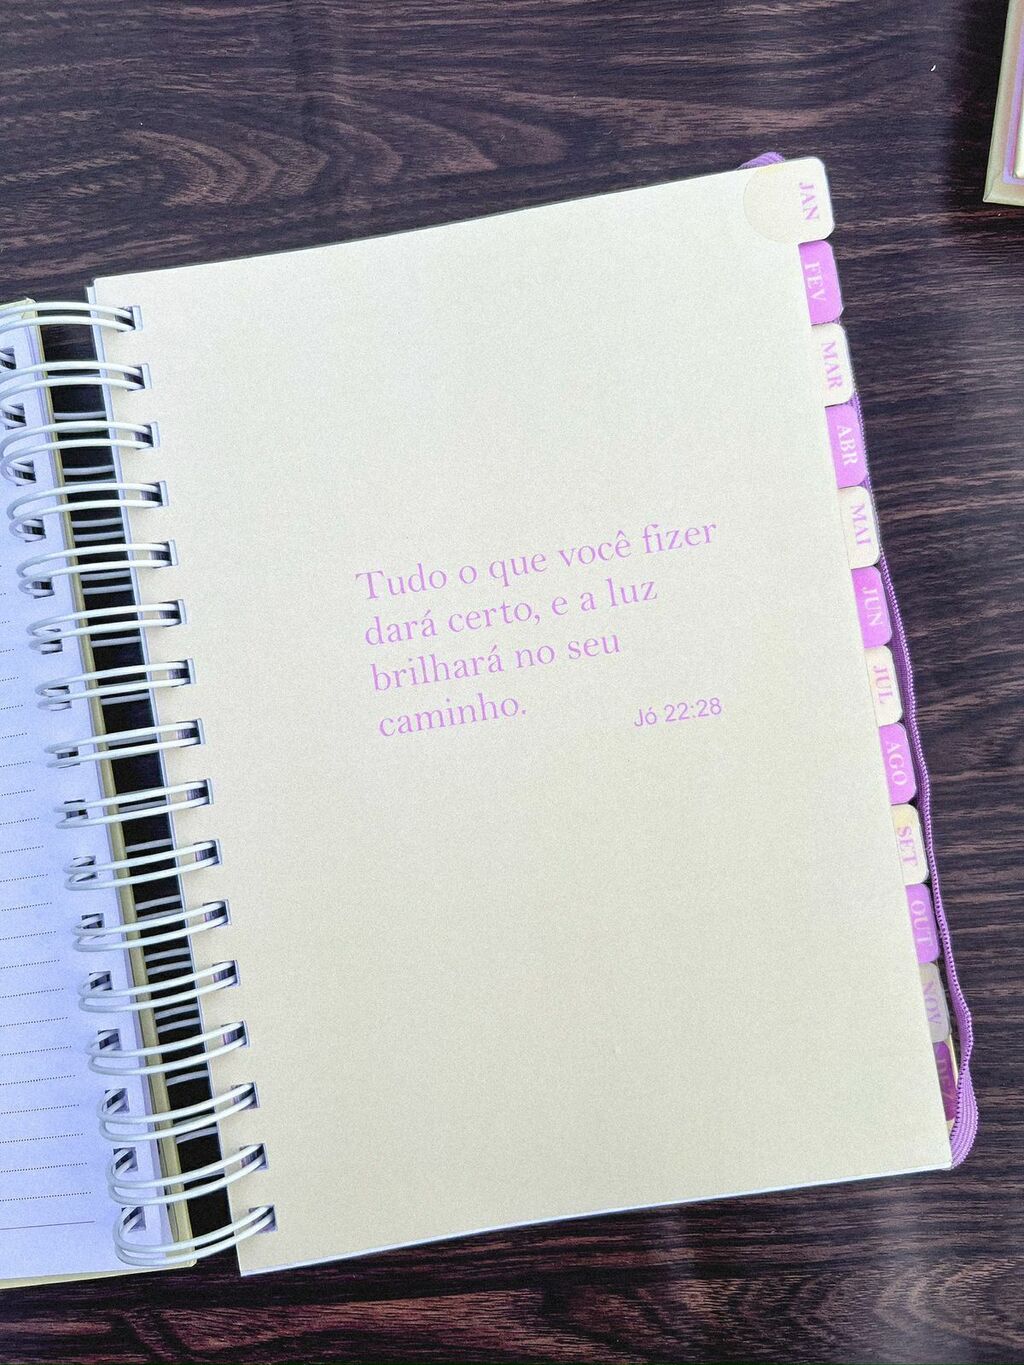 Tudo o que você fizer
dará certo, e a luz
brilhará no seu
caminho.
Jó 22:28
JAN
FEV
MAR
ABR
MAI
JUN
JUL
AGO
SET
OUT
NOV
DEZ